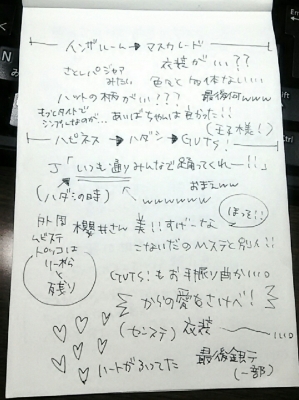 インザルーム→マスカレード
衣装がい??
さとしパジャマみたい
色々と勿体ないいい
ハットの柄がい???
最後何www
もっとタイトでシンプルなのが…
あいばちゃんは良かった!!
(王子様!)
ハピネス→ハダシ→GUTS!
J「いつも通りみんなで踊ってくれー!!」
(ハダシの時)
おまえww
wwwwww
外周 ムビステ トロッコは
櫻井さん 美!!すげーな
ほっそ!!
こないだのMステと別人!!
GUTS!もお手振り曲かいいい
からの愛をさけべ!
(センステ) 衣装〜いいい
ハートがるってた
最後銀テ(一部)